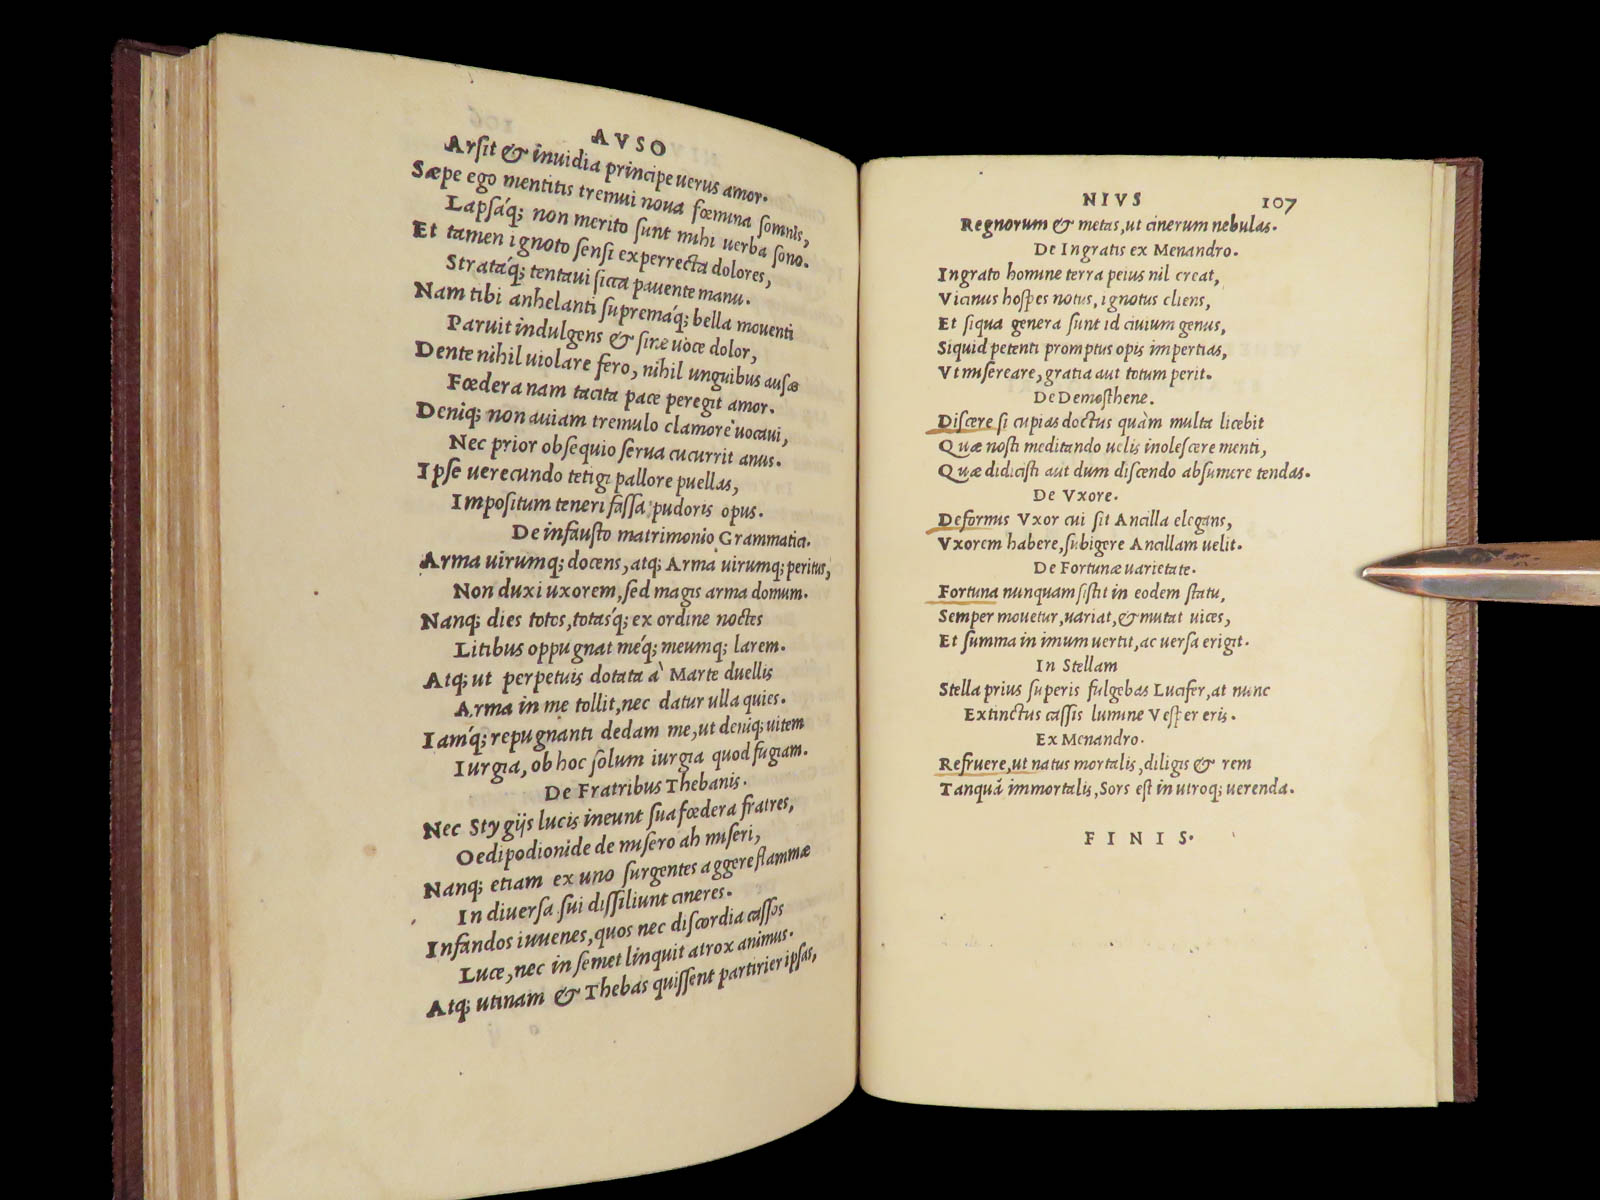 AVSO
Arſit & inuidia principe uerus amor.
Sæpe ego mentitis tremui noua fœmina ſomnis,
Lapſáq; non merito ſunt mihi uerba ſono.
Et tamen ignoto ſenſi experrecta dolores,
Stratáq; tentaui ſicca pauente manu.
Nam tibi anhelanti ſupremáq; bella mouenti
Paruit indulgens & ſine uoce dolor,
Dente nihil uiolare fero, nihil unguibus auſæ
Fœdera nam tacita pace peregit amor.
Deniq; non auiam tremulo clamore uocaui,
Nec prior obſequio ſerua cucurrit anus.
Ipſe uerecundo tetigi pallore puellas,
Impoſitum teneri faſſa pudoris opus.
De infauſto matrimonio Grammatici.
Arma uirumq; docens, atq; Arma uirumq; peritus,
Non duxi uxorem, ſed magis arma domum.
Nanq; dies totos, totaſq́; ex ordine noctes
Litibus oppugnat méq; meumq; larem.
Atq; ut perpetuis dotata à Marte duellis
Arma in me tollit, nec datur ulla quies.
Iamq́; repugnanti dedam me, ut deniq; uitem
Iurgia, ob hoc ſolum iurgia quod fugiam.
De Fratribus Thebanis.
Nec Stygijs lucis ineunt ſua fœdera fratres,
Oedipodionide de miſero ah miſeri,
Nanq; etiam ex uno ſurgentes aggere flammæ
In diuerſa ſui diſſiliunt cineres.
Infandos iuuenes, quos nec diſcordia caſſos
Luce, nec in ſemet linquit atrox animus.
Atq; utinam & Thebas quiſſent partirier ipſas,
NIVS 107
Regnorum & metas, ut cinerum nebulas.
De Ingratis ex Menandro.
Ingrato homine terra peius nil creat,
Vicinus hoſpes notus, ignotus cliens,
Et ſiqua genera ſunt id ciuium genus,
Siquid petenti promptus opis impertias,
Vt miſereare, gratia aut totum perit.
De Demoſthene.
Diſcere ſi cupias doctus quàm multa licebit
Quæ noſti meditando uelis inoleſcere menti,
Quæ didiciſti aut dum diſcendo abſumere tendas.
De Vxore.
Deformis Vxor cui ſit Ancilla elegans,
Vxorem habere, ſubigere Ancillam uelit.
De Fortunæ uarietate.
Fortuna nunquam ſiſtit in eodem ſtatu,
Semper mouetur, uariat, & mutat uices,
Et ſumma in imum uertit, ac uerſa erigit.
In Stellam
Stella prius ſuperis fulgebas Lucifer, at nunc
Extinctus caſſis lumine Veſper eris.
Ex Menandro.
Refruere, ut natus mortalis, diligis & rem
Tanquã immortalis, Sors eſt in utroq; uerenda.
FINIS.